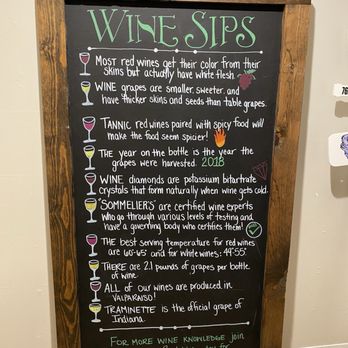 WINE SIPS
MOST red wines get their color from their
skins but actually have white flesh.
WINE grapes are smaller, sweeter, and
have thicker skins and seeds than table grapes.
TANNIC red wines paired with spicy food will
make the food seem spicier!
THE year on the bottle is the year the
grapes were harvested. 2018
WINE diamonds are potassium bitartrate
crystals that form naturally when wine gets cold.
"SOMMELIER'S" are certified wine experts
who go through various levels of testing and
have a governing body who certifies them!
THE best serving temperature for red wines
are 60-65° and for white wines: 49-55°.
THERE are 2.1 pounds of grapes per bottle
of wine.
ALL of our wines are produced in
VALPARAISO!
TRAMINETTE is the official grape of
Indiana.
FOR MORE WINE KNOWLEDGE join
for